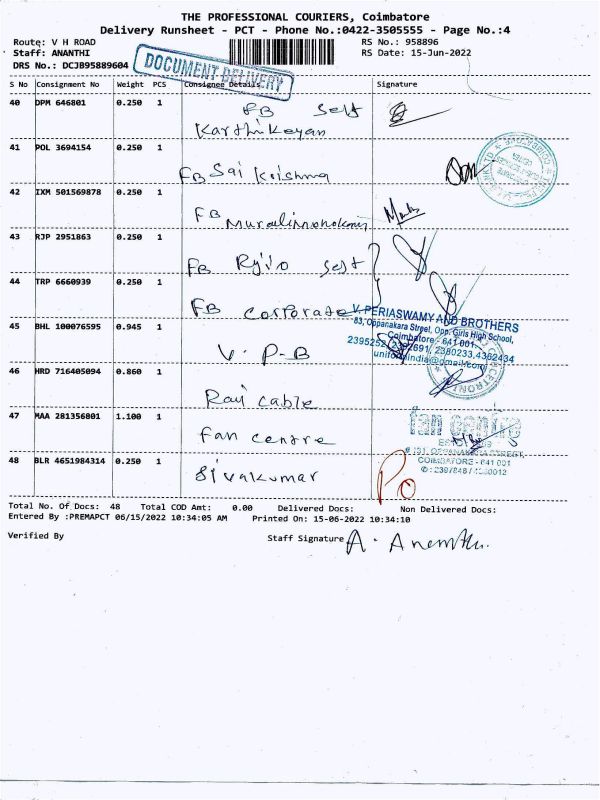 THE PROFESSIONAL COURIERS, Coimbatore
Delivery Runsheet - PCT - Phone No.:0422-3505555 - Page No.:4
Route: V H ROAD
RS No.: 958896
Staff: ANANTHI
RS Date: 15-Jun-2022
DRS No.: DCJB95889604
DOCUMENT DELIVERY
S No Consignment No Weight PCS Consignee Details Signature
40 DPM 646801 0.250 1 FB Self
Karthikeyan
41 POL 3694154 0.250 1
FB Sai Krishna
42 IXM 501569878 0.250 1
FB
43 RJP 2951863 0.250 1
FB Self
44 TRP 6660939 0.250 1
FB Corporate
V. PERIASWAMY AND BROTHERS
83, Oppanakara Street, Opp. Girls High School,
Coimbatore - 641 001.
45 BHL 100076595 0.945 1
2380233, 4362434
V. P-B
46 HRD 716405094 0.860 1
Ravi Cable
47 MAA 281356801 1.100 1
fan centre
Fan centre
COIMBATORE - 641 001
48 BLR 4651984314 0.250 1
Sivakumar
Po
Total No. Of Docs: 48 Total COD Amt: 0.00 Delivered Docs: Non Delivered Docs:
Entered By :PREMAPCT 06/15/2022 10:34:05 AM Printed On: 15-06-2022 10:34:10
Verified By
Staff Signature